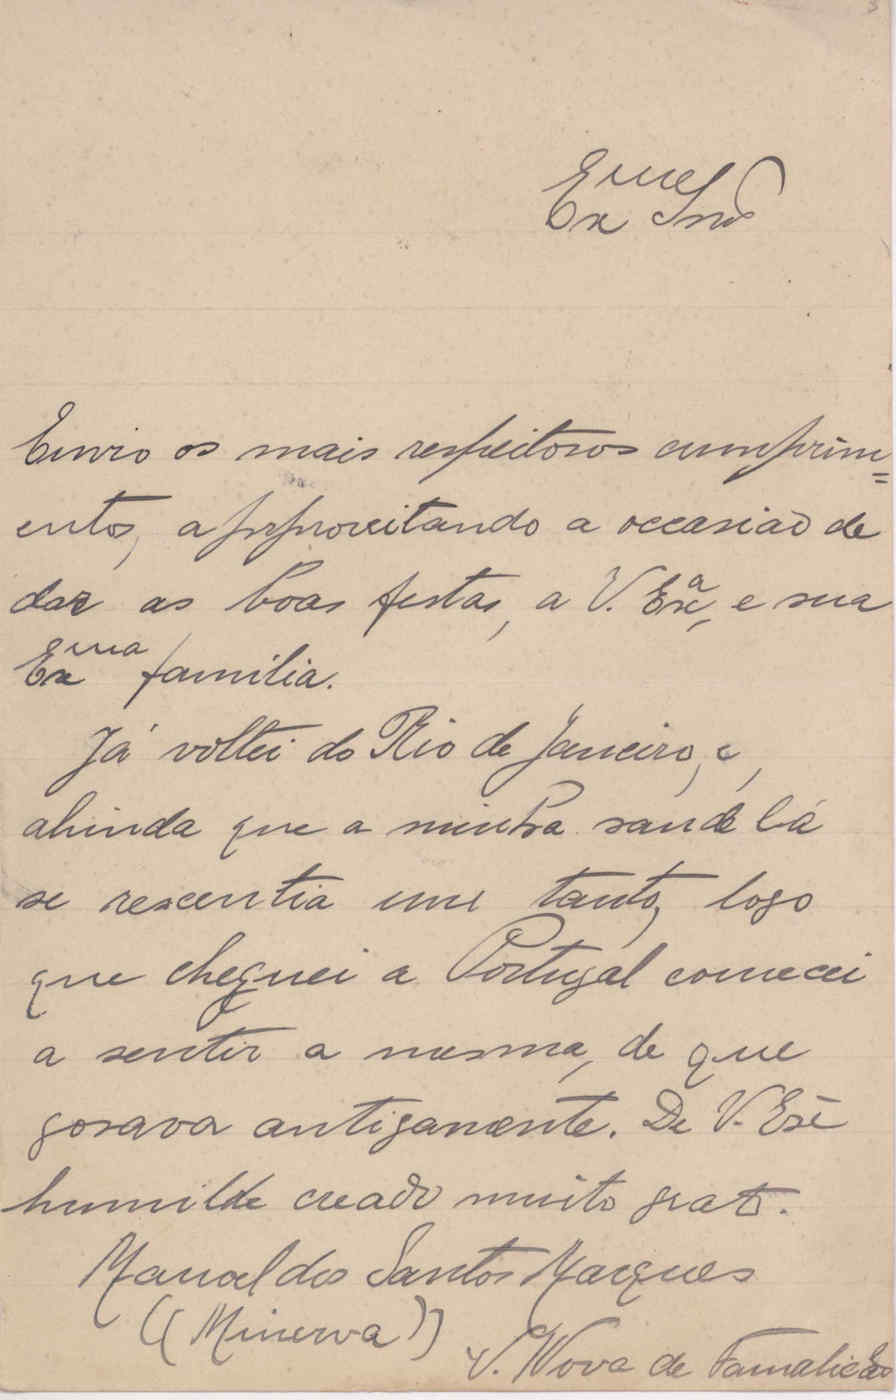 Exmo Snr
Envio os mais respeitosos cumprim=
entos, approveitando a occasião de
dar as boas festas, a V. Exª, e sua
Exma familia.
Já voltei do Rio de Janeiro, e,
ahinda que a minha saude lá
se rescentia um tanto, logo
que cheguei a Portugal comecei
a sentir a mesma, de que
gosava antigamente. De V. Exª
humilde creado muito grato.
Manoel dos Santos Marques
((Minerva))
V. Nova de Famalicão